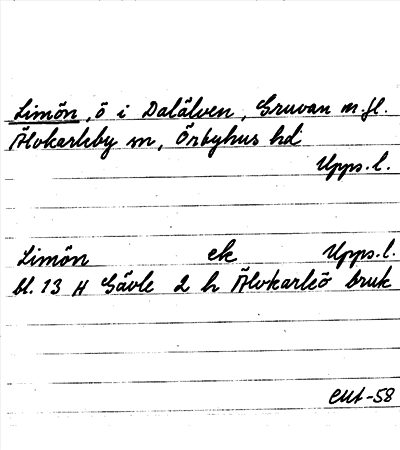 Limön, ö i Dalälven, Gruvan m.fl.
Älvkarleby sn, Örbyhus hd
Upps. l.
Limön ek Upps. l.
bl. 13 H Gävle 2 h Älvkarleö bruk
-58